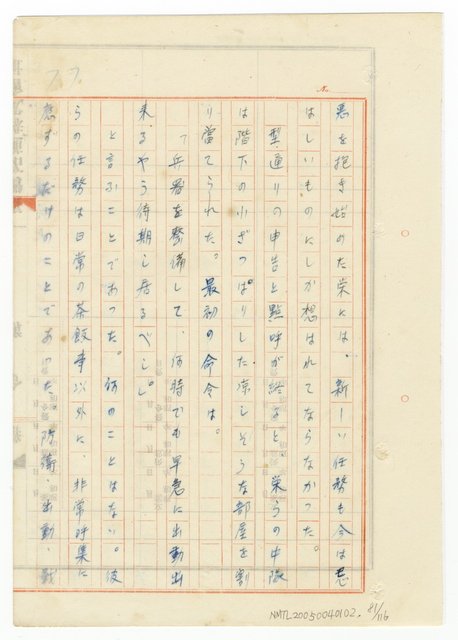 77
No.
悪を抱き始めた栄には、新しい任務も今は忌
はしいものにしか想はれてならなかった。
型通りの申告と點呼が終ると、栄らの中隊
は階下の小ざっぱりした凉しそうな部屋を割
り當てられた。最初の命令は。
「兵器を整備して、何時でも早急に出動出
来るやう待期し居るべし」。
と言ふことであった。何のことはない。彼
らの任務は日常の茶飯事以外に、非常呼集に
應ずるだけのことであった。防衛、出動、戦
NMTL20050040102. 81/116